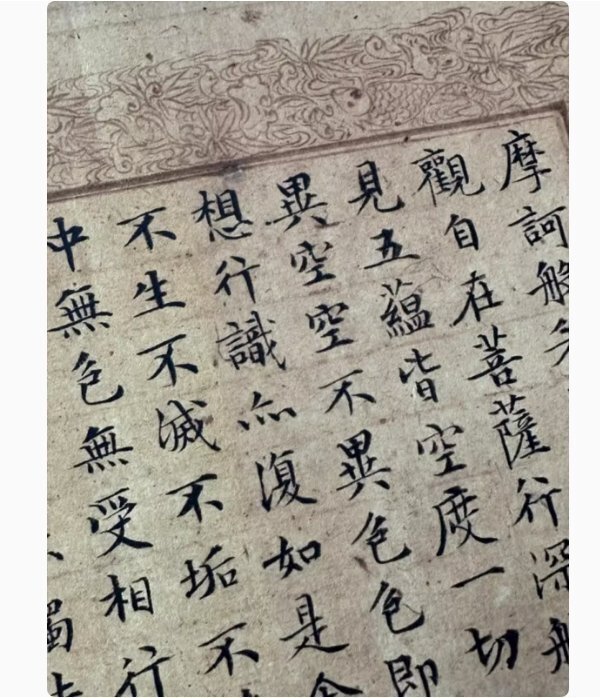 摩訶般若
觀自在菩薩行深般
見五蘊皆空度一切
異空空不異色色即
想行識亦復如是舍
不生不滅不垢不
中無色無受想行
觸